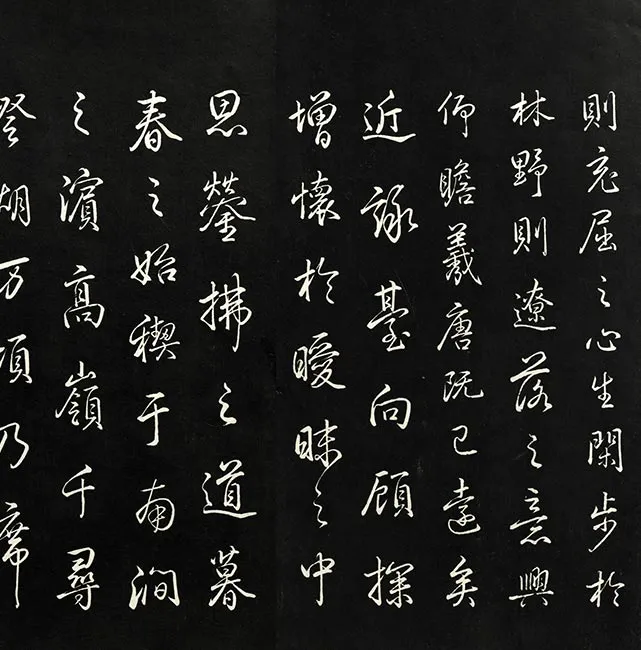 則充屈之心生閑步於
林野則遼落之意興
仰瞻羲唐既已遠矣
近詠臺向顧探
增懷於曖昧之中
思鎣拂之道暮
春之始稧于南澗
之濱高嶺千尋
澄湖万頃乃席